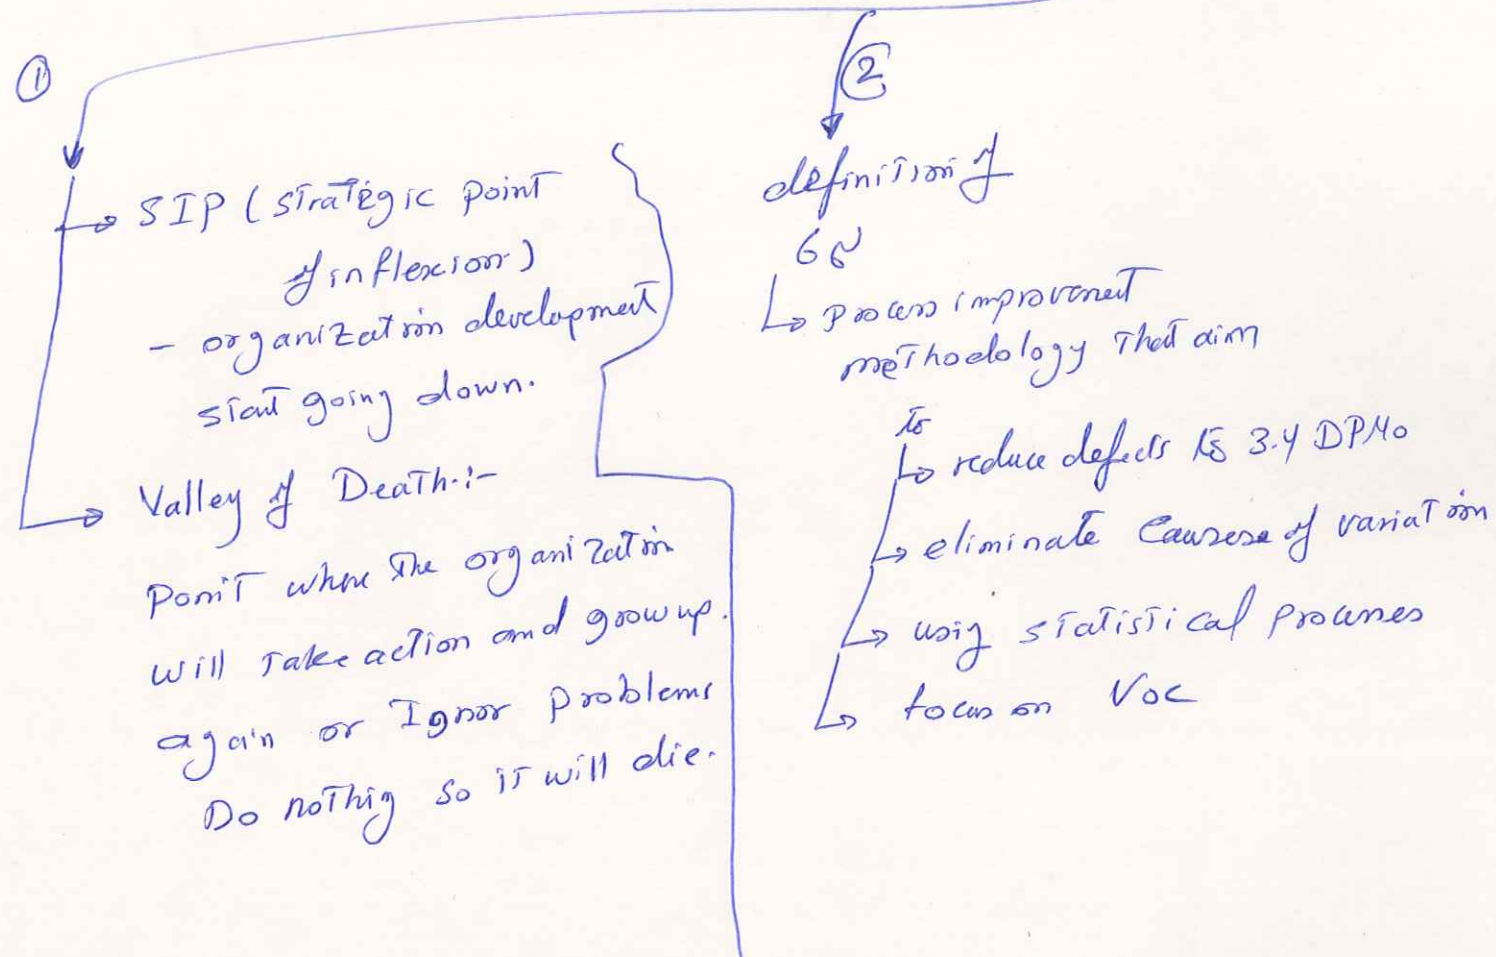 ①
SIP (strategic point
of inflexion)
- organization development
start going down.
Valley of Death:-
Ponit where the organization
will take action and grow up.
again or Ignor problems
Do nothig so it will die.
②
definition of
6σ
process improvement
methodology that aim
to
reduce defects to 3.4 DPMO
eliminate causese of variation
usig statistical processes
focus on VOC